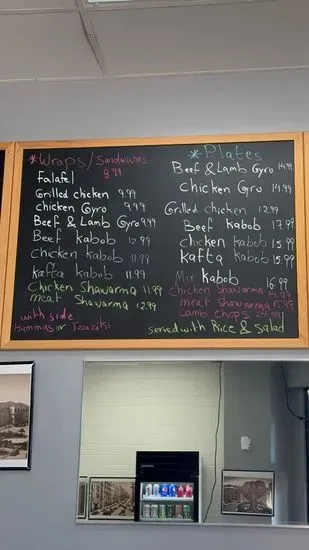 *Wraps/Sandwiches
8.99
Falafel
Grilled chicken 9.99
Chicken Gyro 9.99
Beef & Lamb Gyro 9.99
Beef Kabob 12.99
Chicken kabob 11.99
Kafta kabob 11.99
Chicken Shawarma 11.99
meat Shawarma 12.99
with side
Hummus or Tzaziki
*Plates
Beef & Lamb Gyro 14.99
Chicken Gyro 14.99
Grilled chicken 12.99
Beef Kabob 17.99
chicken kabob 15.99
Kafta Kabob 15.99
Mix Kabob 16.99
Chicken Shawarma 14.99
meat Shawarma 15.99
Lamb Chops
served with Rice & Salad